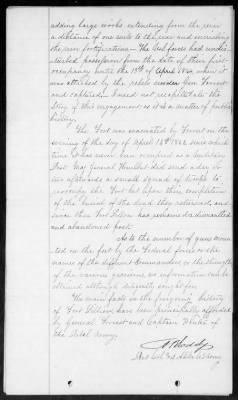 adding large works extending from the river
a distance of one mile to the rear and enriching
the river fortifications — The Fed forces had undis-
turbed possession from the date of their first
occupancy until the 12th of April 1864, when it
was attacked by the rebels under Gen Forrest
and captured. I need not recapitulate the
Story of this engagement as it is a matter of public
history.
The Fort was evacuated by Forrest on the
evening of the day of April 12th 1864 since which
time it has never been occupied as a military
Post. Genl Hurlbut did send a day or
two afterwards a small squad of troops to
reoccupy the Fort but upon their completion
of the burial of the dead they returned, and
since then Fort Pillow has remained a dismantled
and abandoned post.
As to the number of guns moun-
ted on the fort by the Federal forces or the
names of the different Commanders, or the strength
of the various garrisons, no information can be
obtained although diligently sought for.
The main facts in the foregoing history
of Fort Pillow have been principally afforded
by General Forrest and Captain
of the Rebel Army.